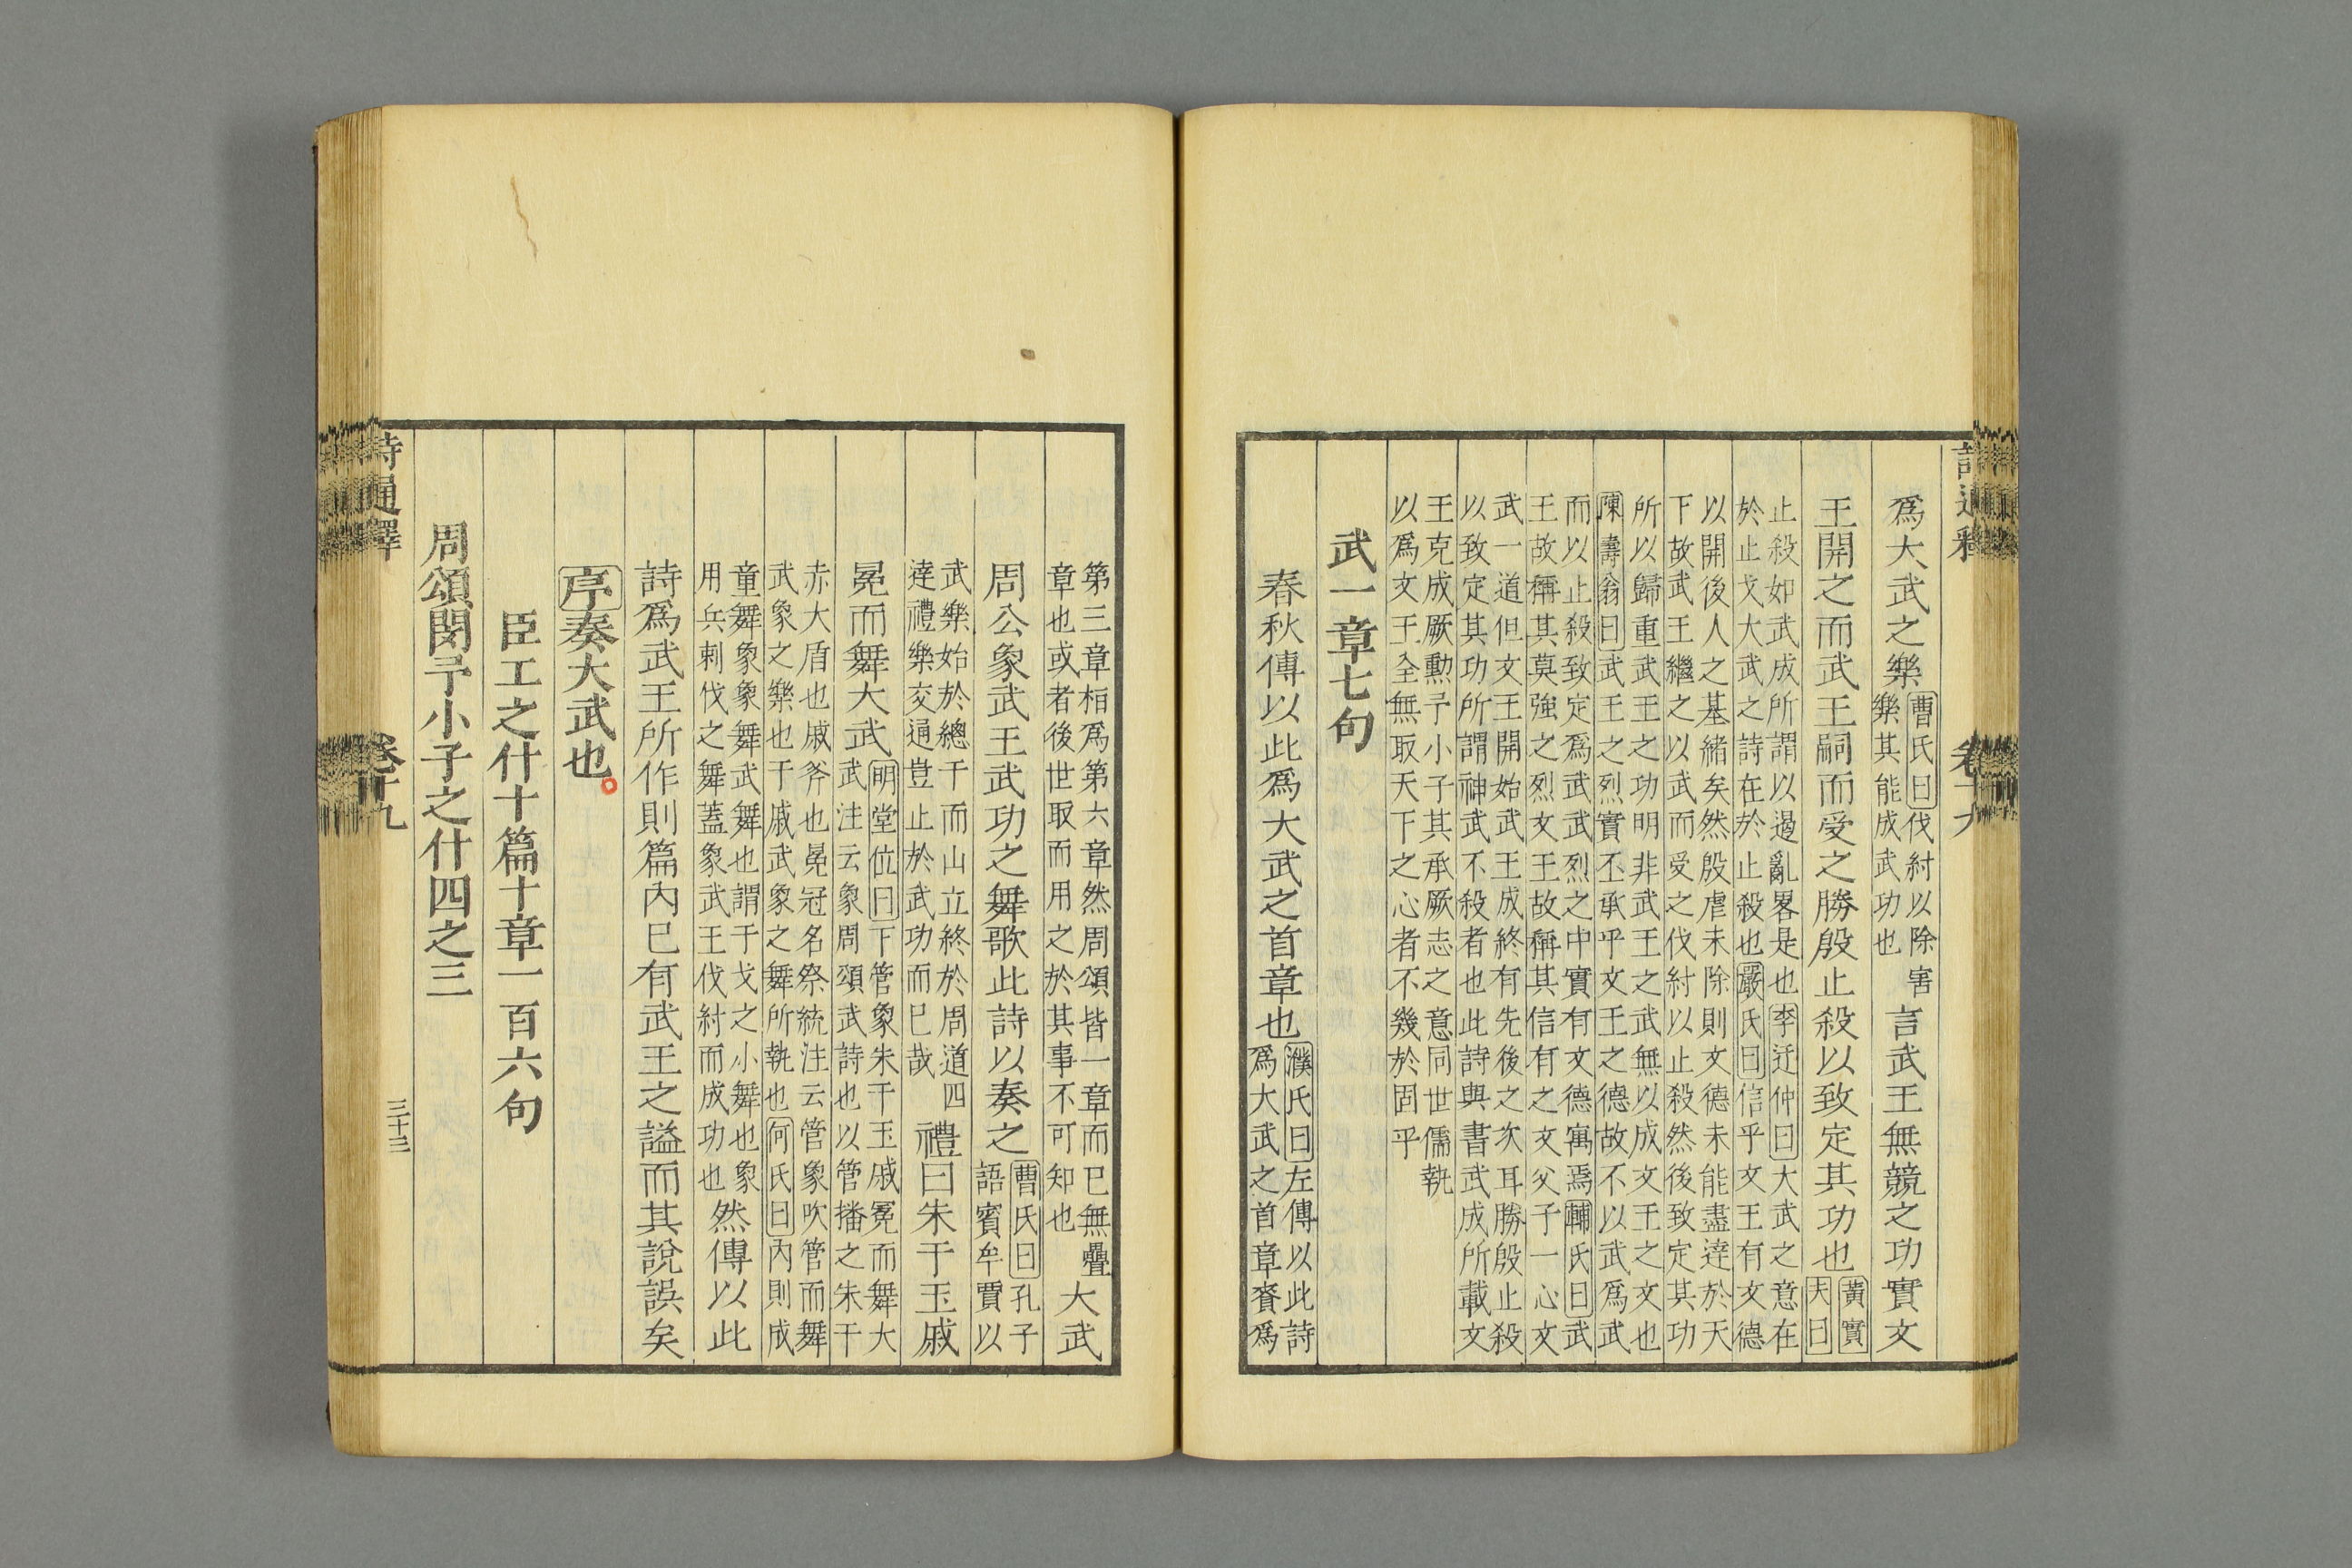 爲大武之樂
曹氏曰伐紂以除害
樂其能成武功也
言武王無競之功實文
王開之而武王嗣而受之勝殷止殺以致定其功也
黃實
夫曰
止殺如武成所謂以遏亂畧是也李迂仲曰大武之意在
於止戈大武之詩在於止殺也嚴氏曰信乎文王有文德
以開後人之基緒矣然殷虐未除則文德未能盡達於天
下故武王繼之以武而受之伐紂以止殺然後致定其功
所以歸重武王之功明非武王之武無以成文王之文也
陳壽翁曰武王之烈實丕承乎文王之德故不以武爲武
而以止殺致定爲武武烈之中實有文德寓焉輔氏曰武
王故稱其莫強之烈文王故稱其信有之文父子一心文
武一道但文王開始武王成終有先後之次耳勝殷止殺
以致定其功所謂神武不殺者也此詩與書武成所載文
王克成厥勳予小子其承厥志之意同世儒執
以爲文王全無取天下之心者不幾於固乎
武一章七句
春秋傳以此爲大武之首章也
濮氏曰左傳以此詩
爲大武之首章賚爲
第三章桓爲第六章然周頌皆一章而已無疊
章也或者後世取而用之於其事不可知也
大武
周公象武王武功之舞歌此詩以奏之
曹氏曰孔子
語賓牟賈以
武樂始於總干而山立終於周道四
達禮樂交通豈止於武功而已哉
禮曰朱干玉戚
冕而舞大武
明堂位曰下管象朱干玉戚冕而舞大
武注云象周頌武詩也以管播之朱干
赤大盾也戚斧也冕冠名祭統注云管象吹管而舞
武象之樂也干戚武象之舞所執也何氏曰內則成
童舞象象舞武舞也謂干戈之小舞也象
用兵刺伐之舞蓋象武王伐紂而成功也
然傳以此
詩爲武王所作則篇內已有武王之謚而其說誤矣
序奏大武也
臣工之什十篇十章一百六句
周頌閔予小子之什四之三
詩通釋
卷十九
三十三